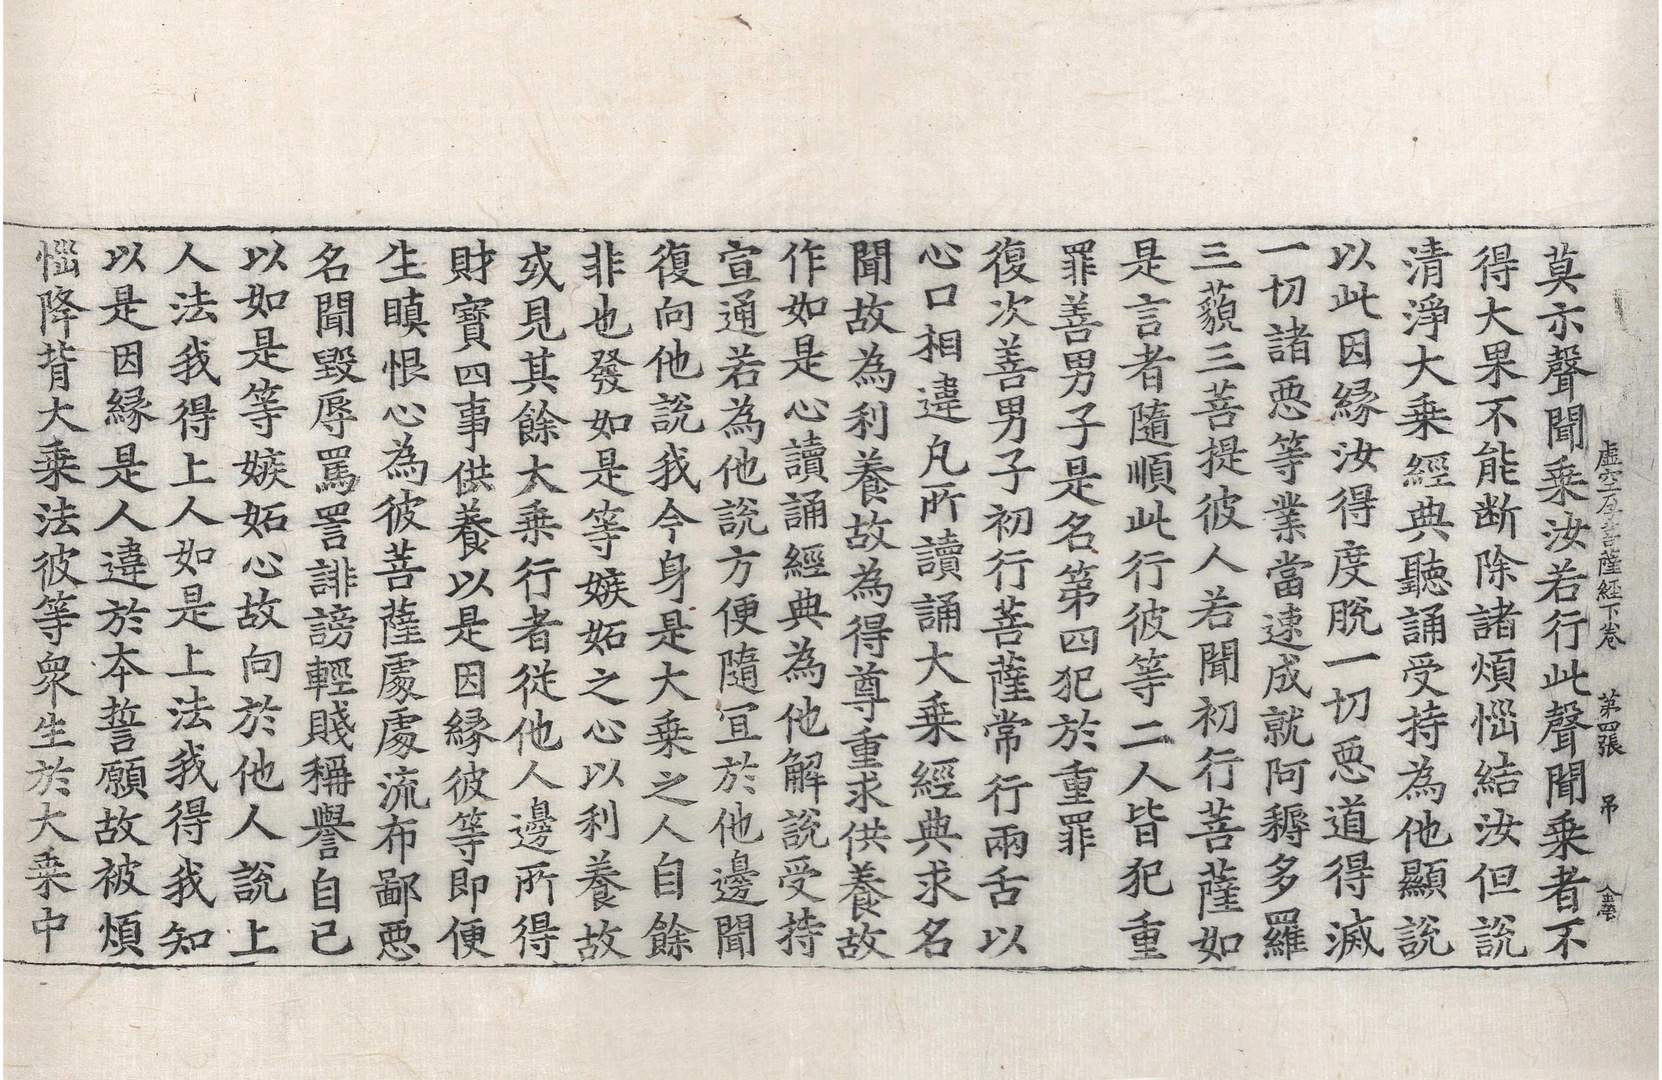 虛空孕菩薩經下卷 第四張 吊
莫示聲聞乘汝若行此聲聞乘者不
得大果不能断除諸煩惱結汝但說
清淨大乘經典聽誦受持為他顯說
以此因縁汝得度脫一切惡道得滅
一切諸惡等業當速成就阿耨多羅
三藐三菩提彼人若聞初行菩薩如
是言者隨順此行彼等二人皆犯重
罪善男子是名第四犯於重罪
復次善男子初行菩薩常行兩舌以
心口相違凡所讀誦大乘經典求名
聞故為利養故為得尊重求供養故
作如是心讀誦經典為他解說受持
宣通若為他說方便隨宜於他邊聞
復向他說我今身是大乘之人自餘
非也發如是等嫉妬之心以利養故
或見其餘大乘行者從他人邊所得
財寶四事供養以是因縁彼等即便
生瞋恨心為彼菩薩處處流布鄙惡
名聞毀辱罵詈誹謗輕賤稱譽自已
以如是等嫉妬心故向於他人說上
人法我得上人如是上法我得我知
以是因縁是人違於本誓願故被煩
惱降背大乘法彼等衆生於大乗中